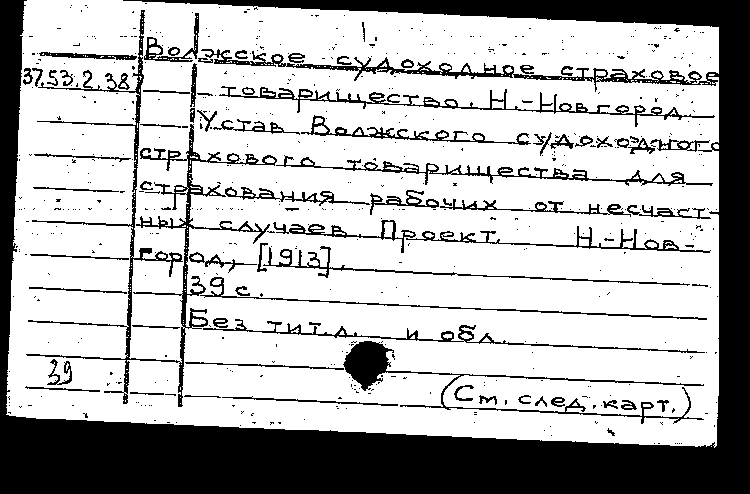 1.
Волжское судоходное страховое
37.53.2.387
товарищество. Н.-Новгород
Устав Волжского судоходного
страхового товарищества для
страхования рабочих от несчаст-
ных случаев. Проект. Н.-Нов-
город, [1913].
39 с.
Без тит.л. и обл.
39
(См. след. карт.)